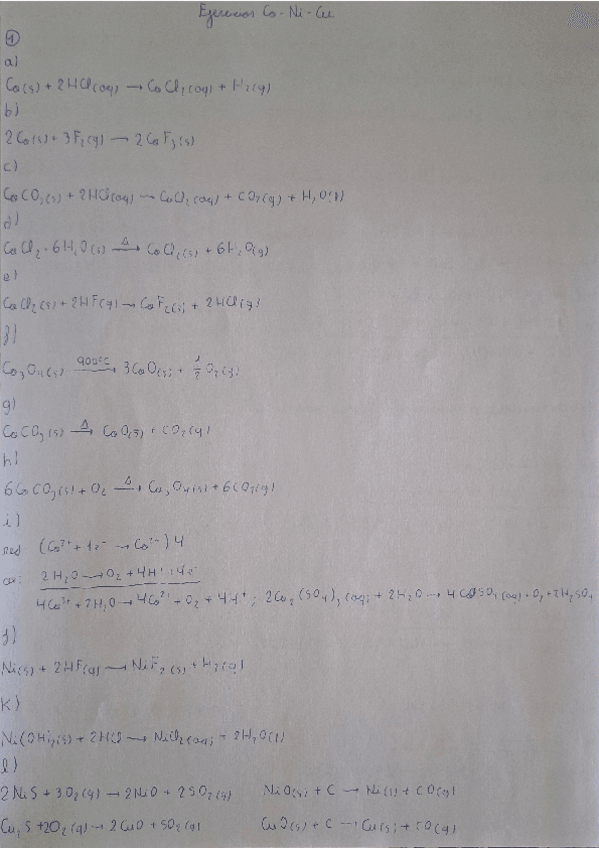 Ejercicios Co-Ni-Cu
1
a)
Co(s) + 2HCl(aq) → CoCl₂(aq) + H₂(g)
b)
2Co(s) + 3F₂(g) → 2CoF₃(s)
c)
CoCO₃(s) + 2HCl(aq) → CoCl₂(aq) + CO₂(g) + H₂O(l)
d)
CoCl₂·6H₂O(s) —Δ→ CoCl₂(s) + 6H₂O(g)
e)
CoCl₂(s) + 2HF(g) → CoF₂(s) + 2HCl(g)
f)
Co₃O₄(s) —900ºC→ 3CoO(s) + 1/2 O₂(g)
g)
CoCO₃(s) —Δ→ CoO(s) + CO₂(g)
h)
6CoCO₃(s) + O₂ —Δ→ Co₃O₄(s) + 6CO₂(g)
i)
red: (Co³⁺ + 1e⁻ → Co²⁺) 4
ox: 2H₂O → O₂ + 4H⁺ + 4e⁻
4Co³⁺ + 2H₂O → 4Co²⁺ + O₂ + 4H⁺; 2Co₂(SO₄)₃(aq) + 2H₂O → 4CoSO₄(aq) + O₂ + 2H₂SO₄
j)
Ni(s) + 2HF(g) → NiF₂(s) + H₂(g)
k)
Ni(OH)₂(s) + 2HCl → NiCl₂(aq) + 2H₂O(l)
l)
2NiS + 3O₂(g) → 2NiO + 2SO₂(g) NiO(s) + C → Ni(s) + CO(g)
Cu₂S + 2O₂(g) → 2CuO + SO₂(g) CuO(s) + C → Cu(s) + CO(g)